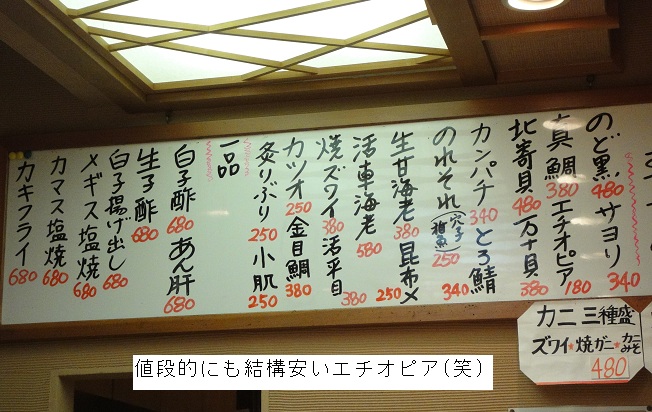 のど黒 480 サヨリ 340
真鯛 380 エチオピア 180
北寄貝 480 万十貝 380
カンパチ 340 とろ鯖 340
のれそれ(穴子稚魚) 250
生甘海老 380 昆布〆 250
活車海老 580
焼ズワイ 380 活平目 380
カツオ 250 金目鯛 380
炙りぶり 250 小肌 250
一品
白子酢 680 あん肝 680
生子酢 680
白子揚げ出し 680
メギス塩焼 680
カマス塩焼 680
カキフライ 680
カニ三種盛
ズワイ★焼ガニ★カニみそ
480
値段的にも結構安いエチオピア(笑)